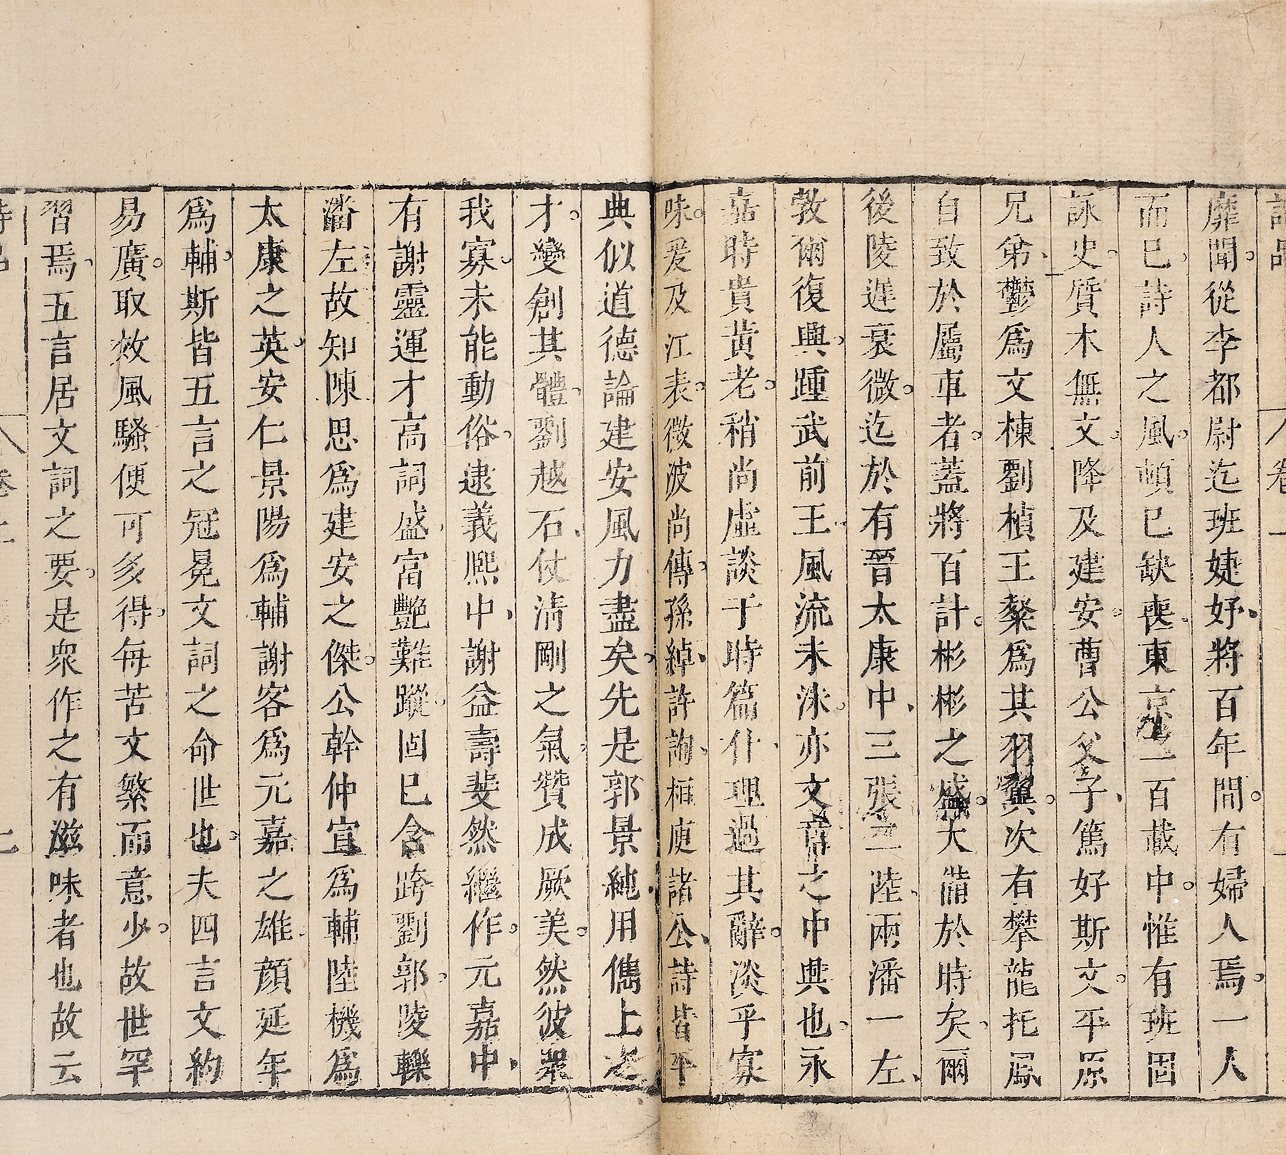 靡聞從李都尉迄班婕妤將百年間有婦人焉一人
而已詩人之風頓已缺喪東京二百載中惟有班固
詠史質木無文降及建安曹公父子篤好斯文平原
兄弟鬱為文棟劉楨王粲為其羽翼次有攀龍托鳳
自致於屬車者蓋將百計彬彬之盛大備於時矣爾
後陵遲衰微迄於有晉太康中三張二陸兩潘一左
敦爾復興踵武前王風流未沬亦文章之中興也永
嘉時貴黃老稍尚虛談于時篇什理過其辭淡乎寡
味爰及江表微波尚傳孫綽許詢桓庾諸公詩皆平
典似道德論建安風力盡矣先是郭景純用儁上之
才變創其體劉越石仗清剛之氣贊成厥美然彼衆
我寡未能動俗逮義熙中謝益壽斐然繼作元嘉中
有謝靈運才高詞盛富艷難蹤固已含跨劉郭陵轢
潘左故知陳思為建安之傑公幹仲宣為輔陸機為
太康之英安仁景陽為輔謝客為元嘉之雄顏延年
為輔斯皆五言之冠冕文詞之命世也夫四言文約
易廣取效風騷便可多得每苦文繁而意少故世罕
習焉五言居文詞之要是衆作之有滋味者也故云